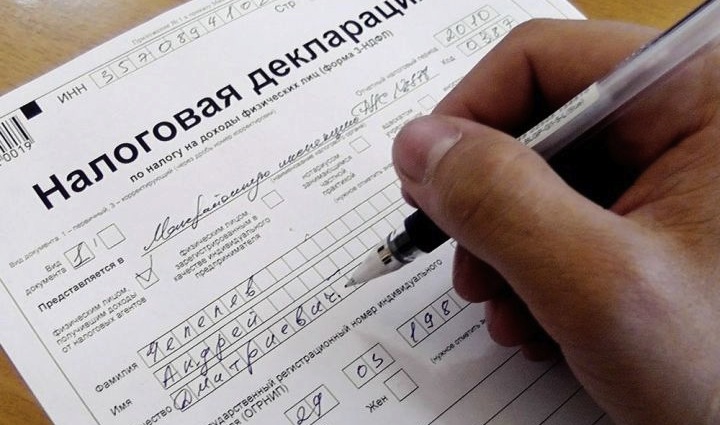 ИНН 357089410
Стр
0019
Налоговая деклараци
по налогу на доходы физических лиц (форма 3-НДФЛ)
Отчетный налоговый период 2010
Вид документа: 1 – первичный, 3 – корректирующий
Вид документа 1 /
Код 0387
Представляется в Межрайонную инспекцию ФНС
(наименование налогового органа)
физическим лицом, получившим доходы от налоговых агентов
физическим лицом, зарегистрированным в качестве индивидуального предпринимателя
нотариусом, занимающимся частной практикой
адвокатом
(нужное отметить
Фамилия Чепелев
Имя Андрей
чество Дмитриевич
государственный регистрационный номер индивидуального
(ОГРНИП)
29 05 198
Жен
(нужное отметить